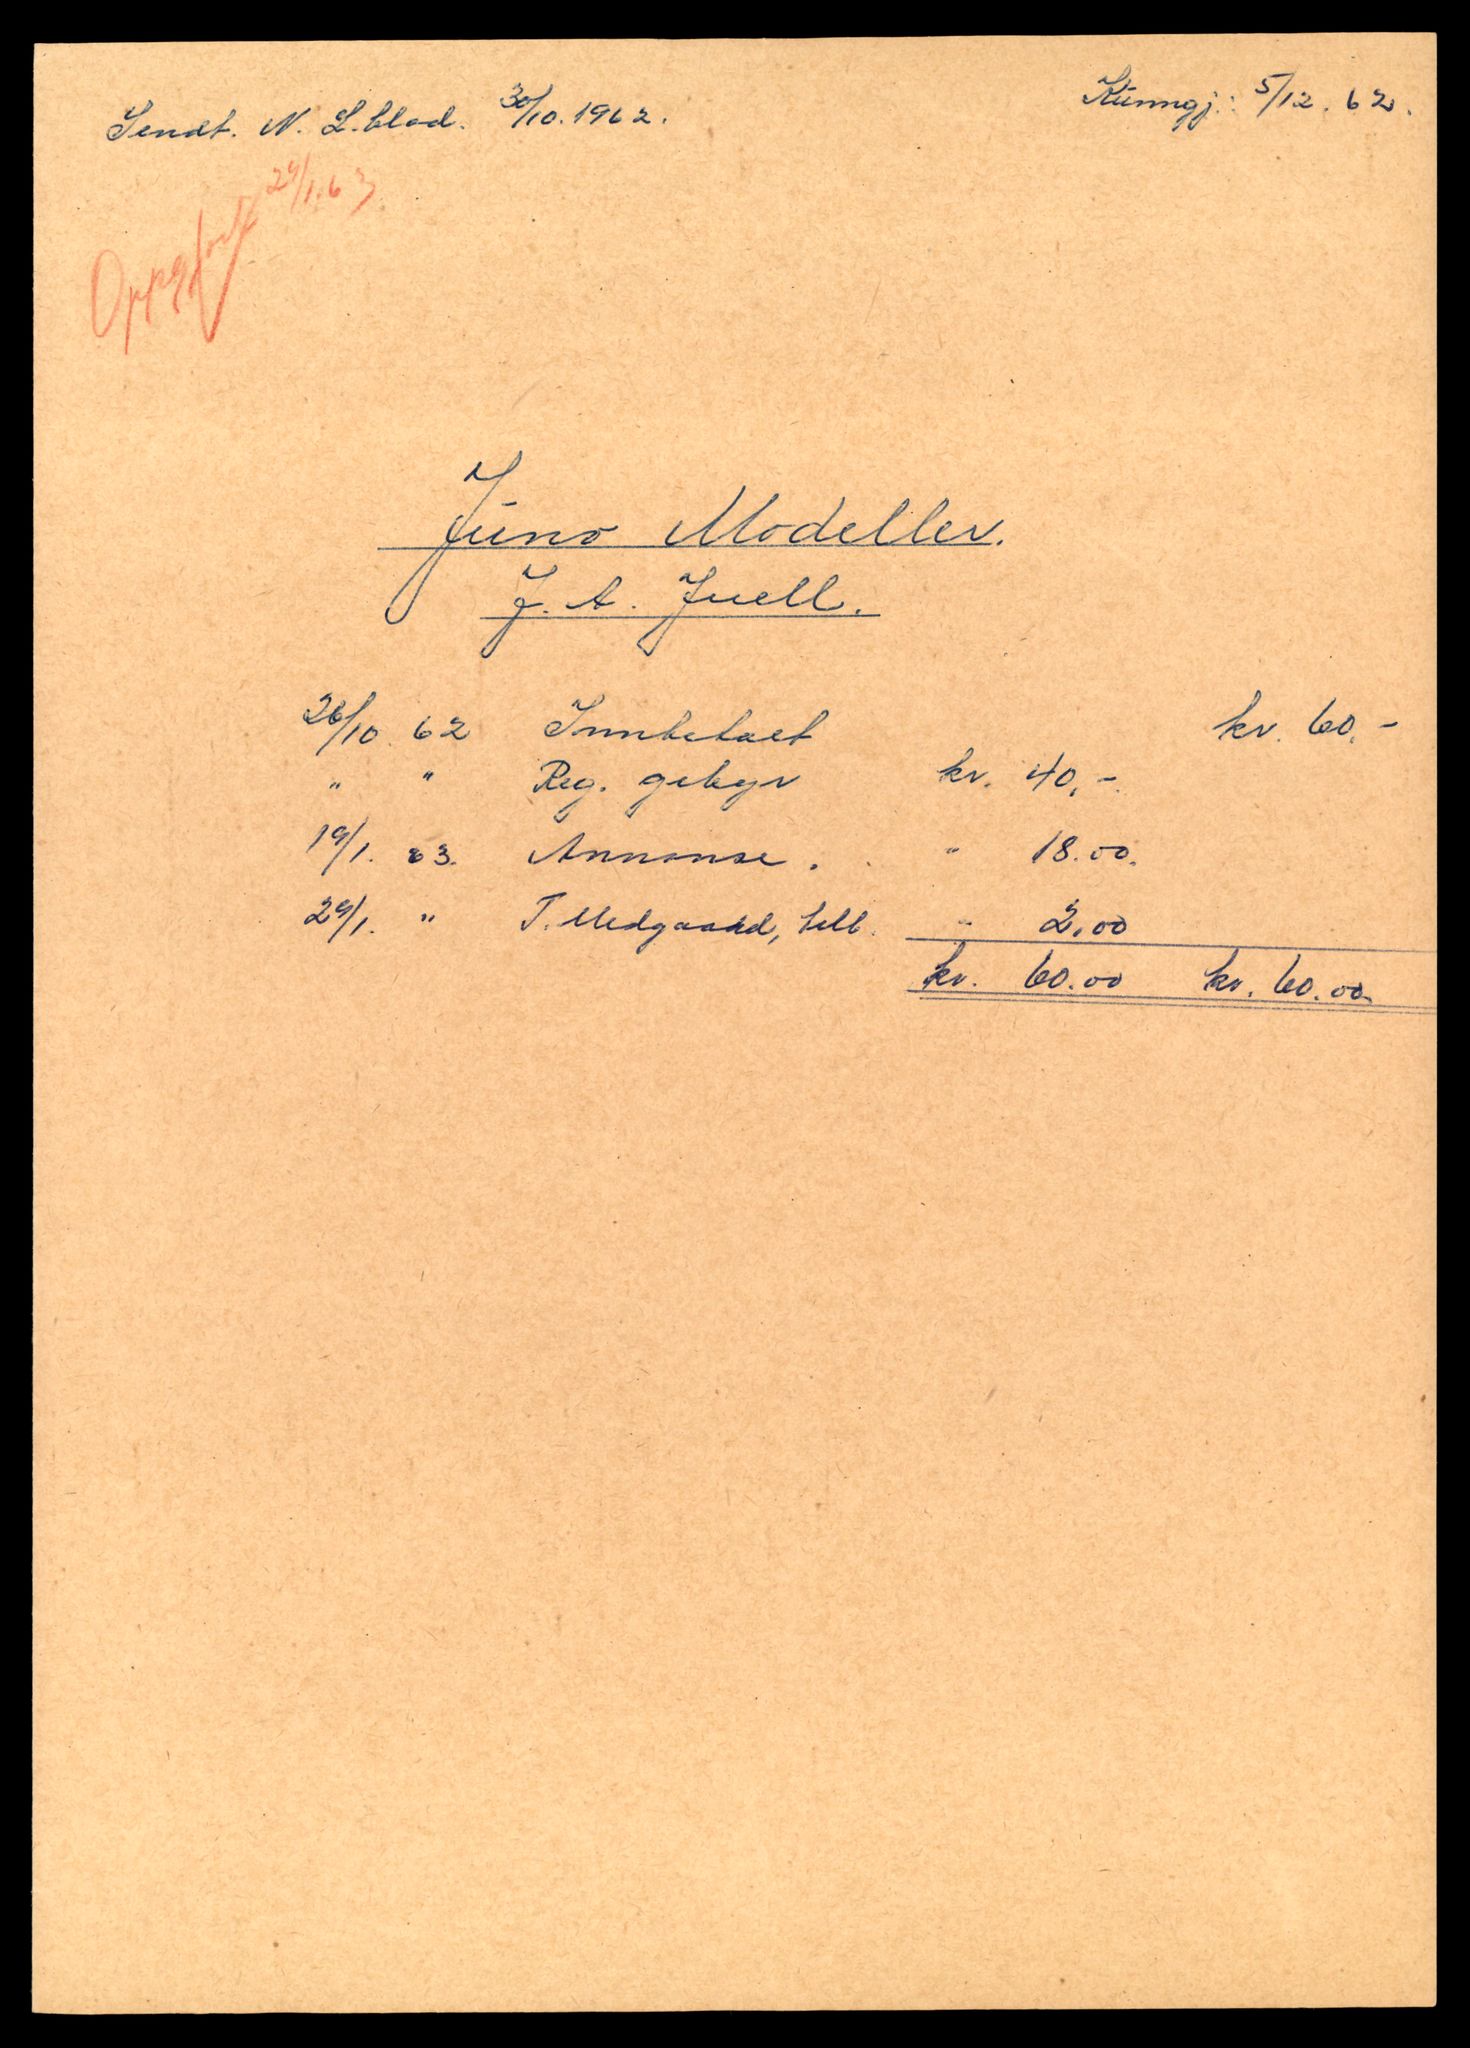 Sendt. N. L.blad. 30/10. 1962.
Kunngj.: 5/12. 62.
Oppgjort 29/1.63
Juno Modeller.
J. A. Juell.
26/10 62 Innbetalt kr. 60,-
" " Reg. gebyr kr. 40,-.
19/1. 63. Annonse. " 18.00.
29/1. " T. Medgaard, tilb. " 2.00
kr. 60.00 kr. 60.00